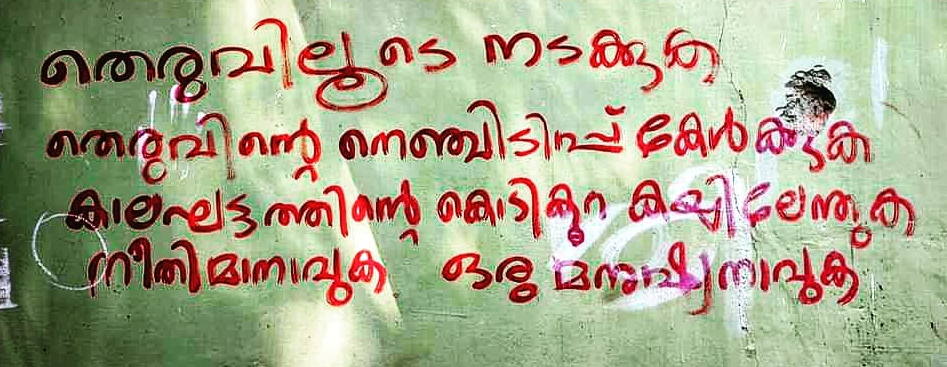 തെരുവിലൂടെ നടക്കുക
തെരുവിന്റെ നെഞ്ചിടിപ്പ് കേൾക്കുക
കാലഘട്ടത്തിന്റെ കൊടികൂറ കയ്യിലേന്തുക
നീതിമാനാവുക ഒരു മനുഷ്യനാവുക